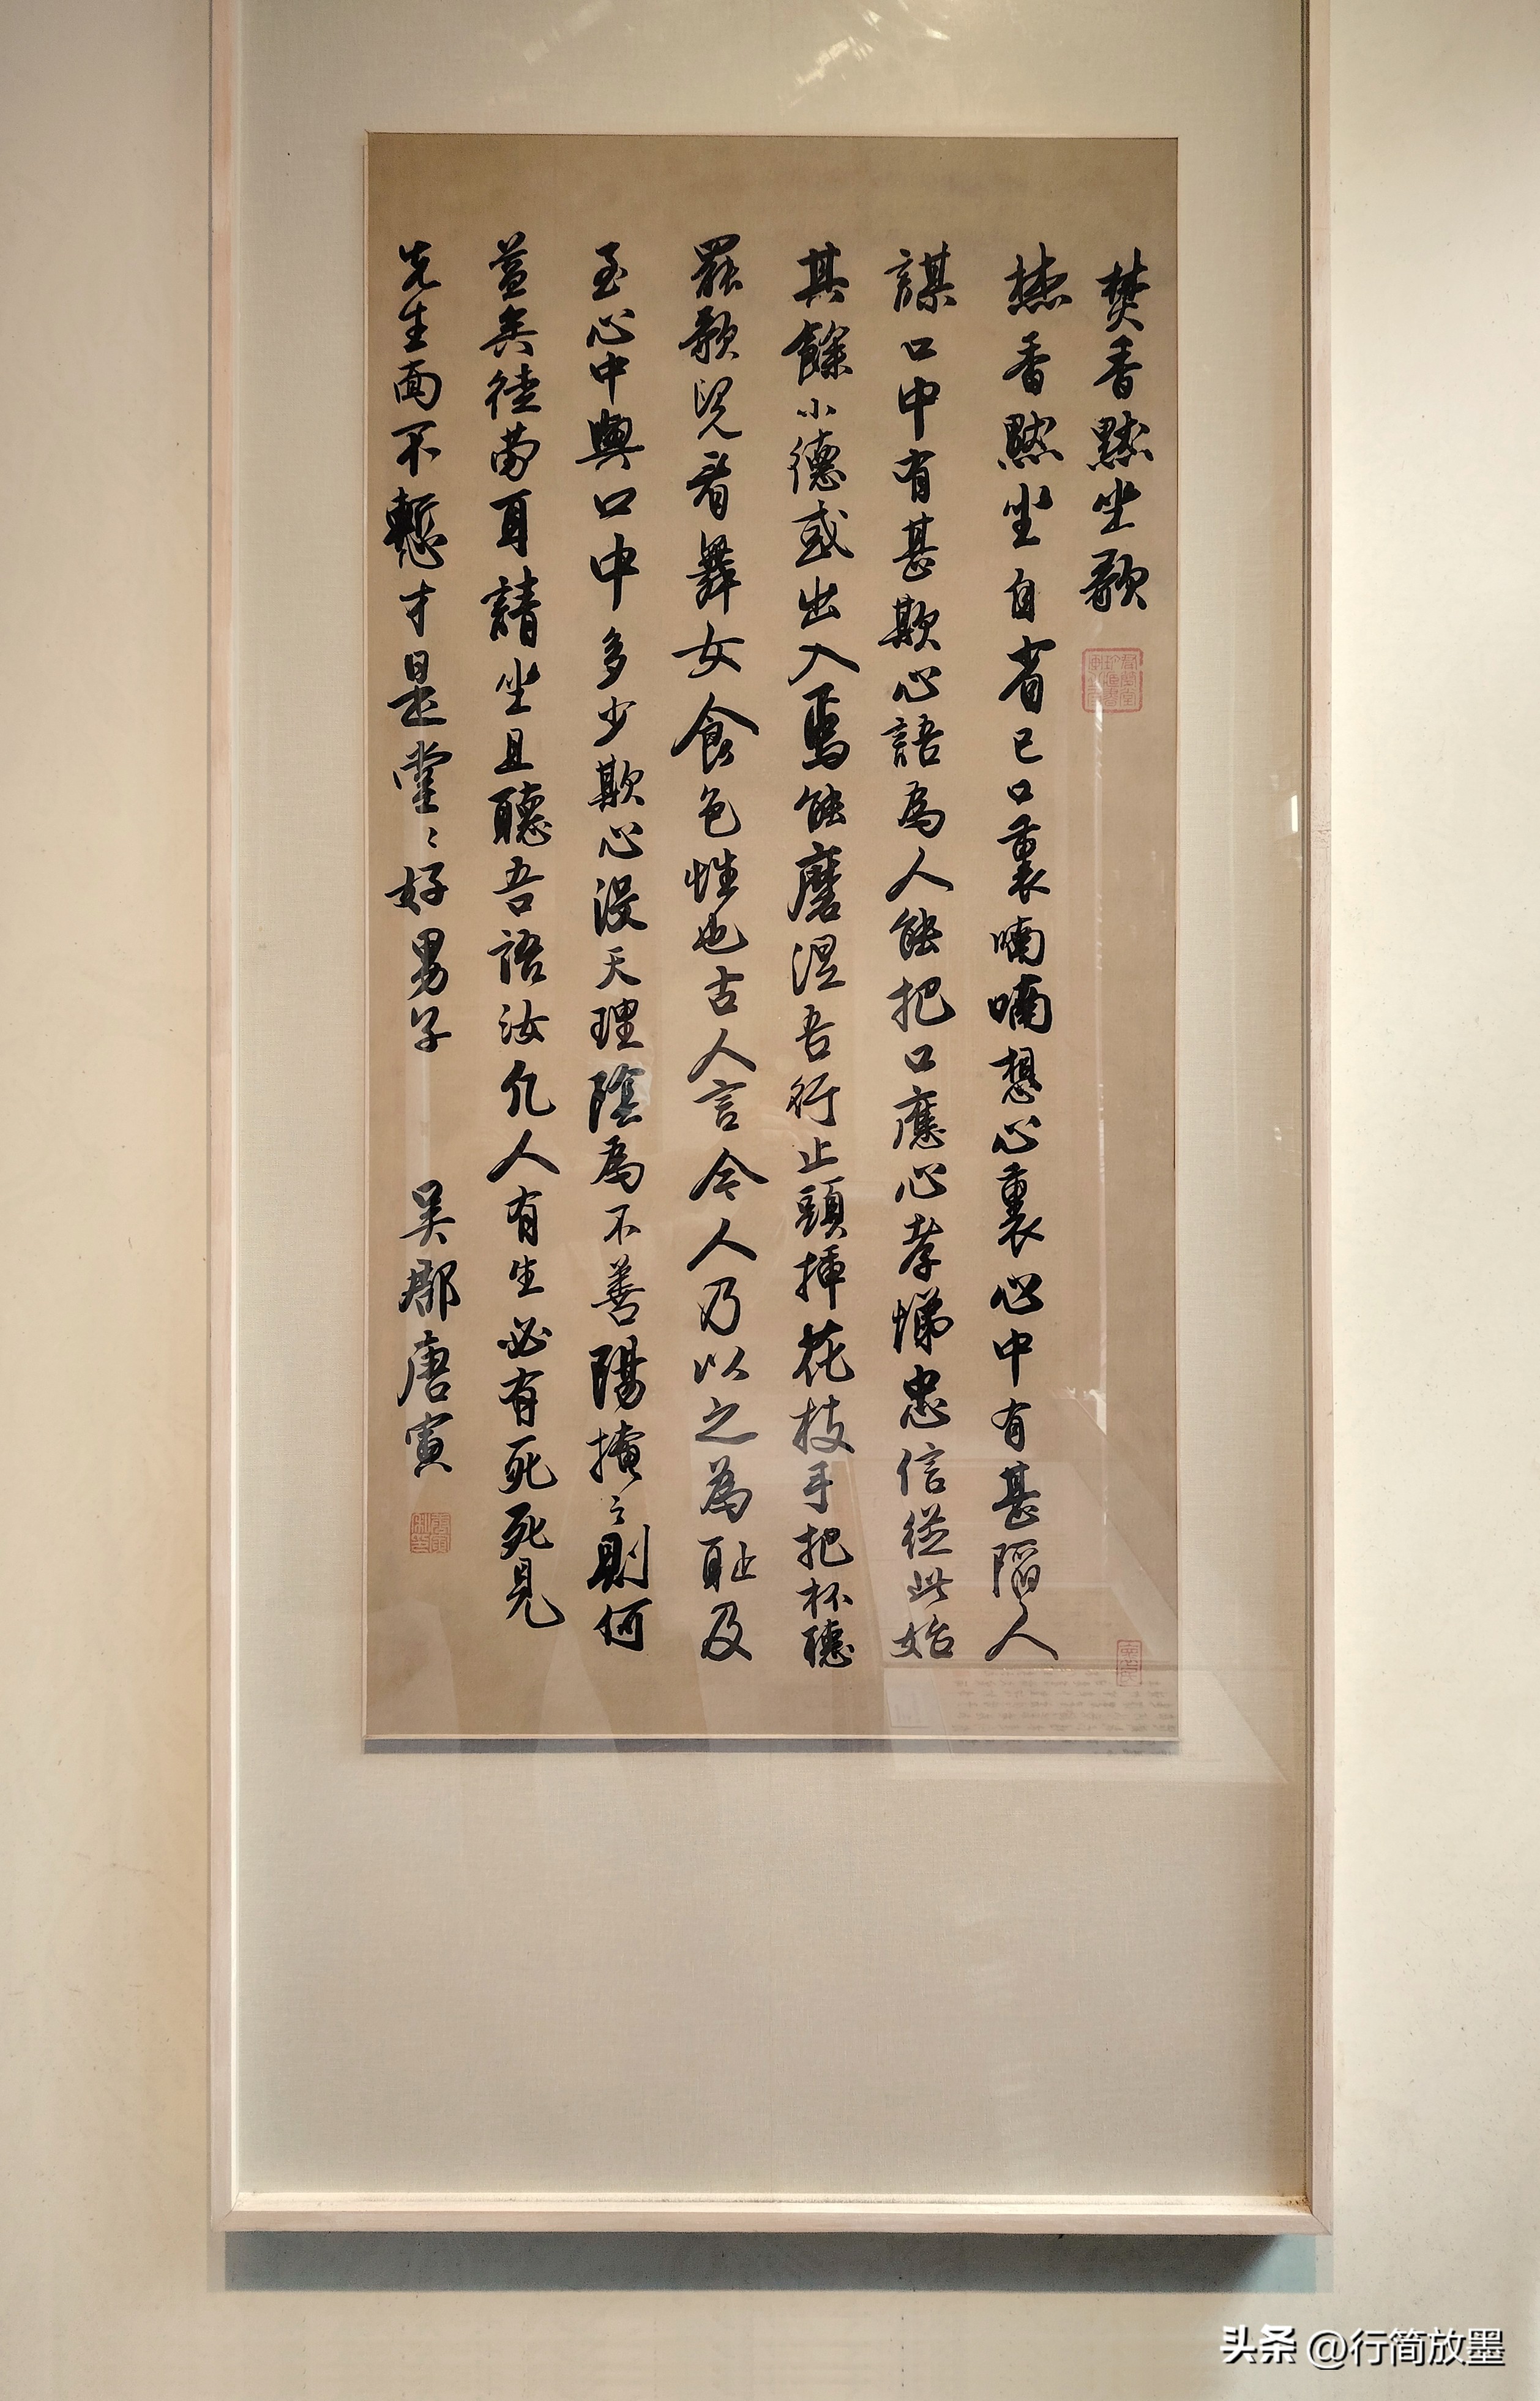 焚香默坐歌
焚香默坐自省己口裏喃喃想心裏心中有甚陷人
謀口中有甚欺心語為人能把口應心孝悌忠信從此始
其餘小德或出入焉能磨涅吾行止頭揷花枝手把杯聽
罷歌児看舞女食色性也古人言今人乃以之為耻及
至心中與口中多少欺心没天理陰為不善陽掩之則何
益矣徒勞耳請坐且聽吾語汝凡人有生必有死死見
先生面不慙才是堂〻好男子 吳郡唐寅
头条 @行简放墨